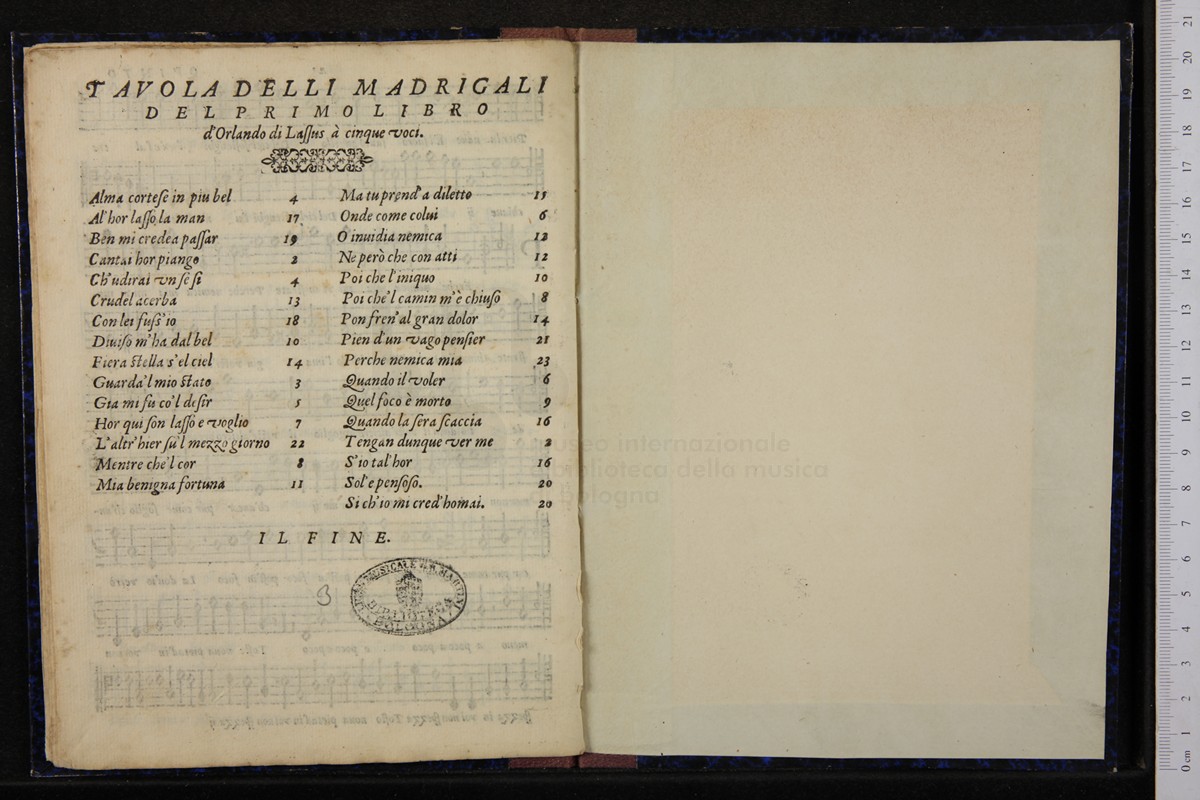 TAVOLA DELLI MADRIGALI
DEL PRIMO LIBRO
d'Orlando di Laſſus à cinque voci.
Alma corteſe in piu bel 4
Al'hor laſſo la man 17
Ben mi credea paſſar 19
Cantai hor piango 2
Ch'udirai vn ſe ſi 4
Crudel acerba 13
Con lei fuſs'io 18
Diuiſo m'ha dal bel 10
Fiera ſtella s'el ciel 14
Guarda'l mio ſtato 3
Gia mi fu co'l deſir 5
Hor qui ſon laſſo e voglio 7
L'altr'hier ſu'l mezzo giorno 22
Mentre che'l cor 8
Mia benigna fortuna 11
Ma tu prend'a diletto 15
Onde come colui 6
O inuidia nemica 12
Ne però che con atti 12
Poi che l'iniquo 10
Poi che'l camin m'è chiuſo 8
Pon fren'al gran dolor 14
Pien d'un vago penſier 21
Perche nemica mia 23
Quando il voler 6
Quel foco è morto 9
Quando la ſera ſcaccia 16
Tengan dunque ver me 2
S'io tal'hor 16
Sol'e penſoſo. 20
Si ch'io mi cred'homai. 20
IL FINE.
3
BIBLIOTECA
BOLOGNA
museo internazionale
e biblioteca della musica
di bologna